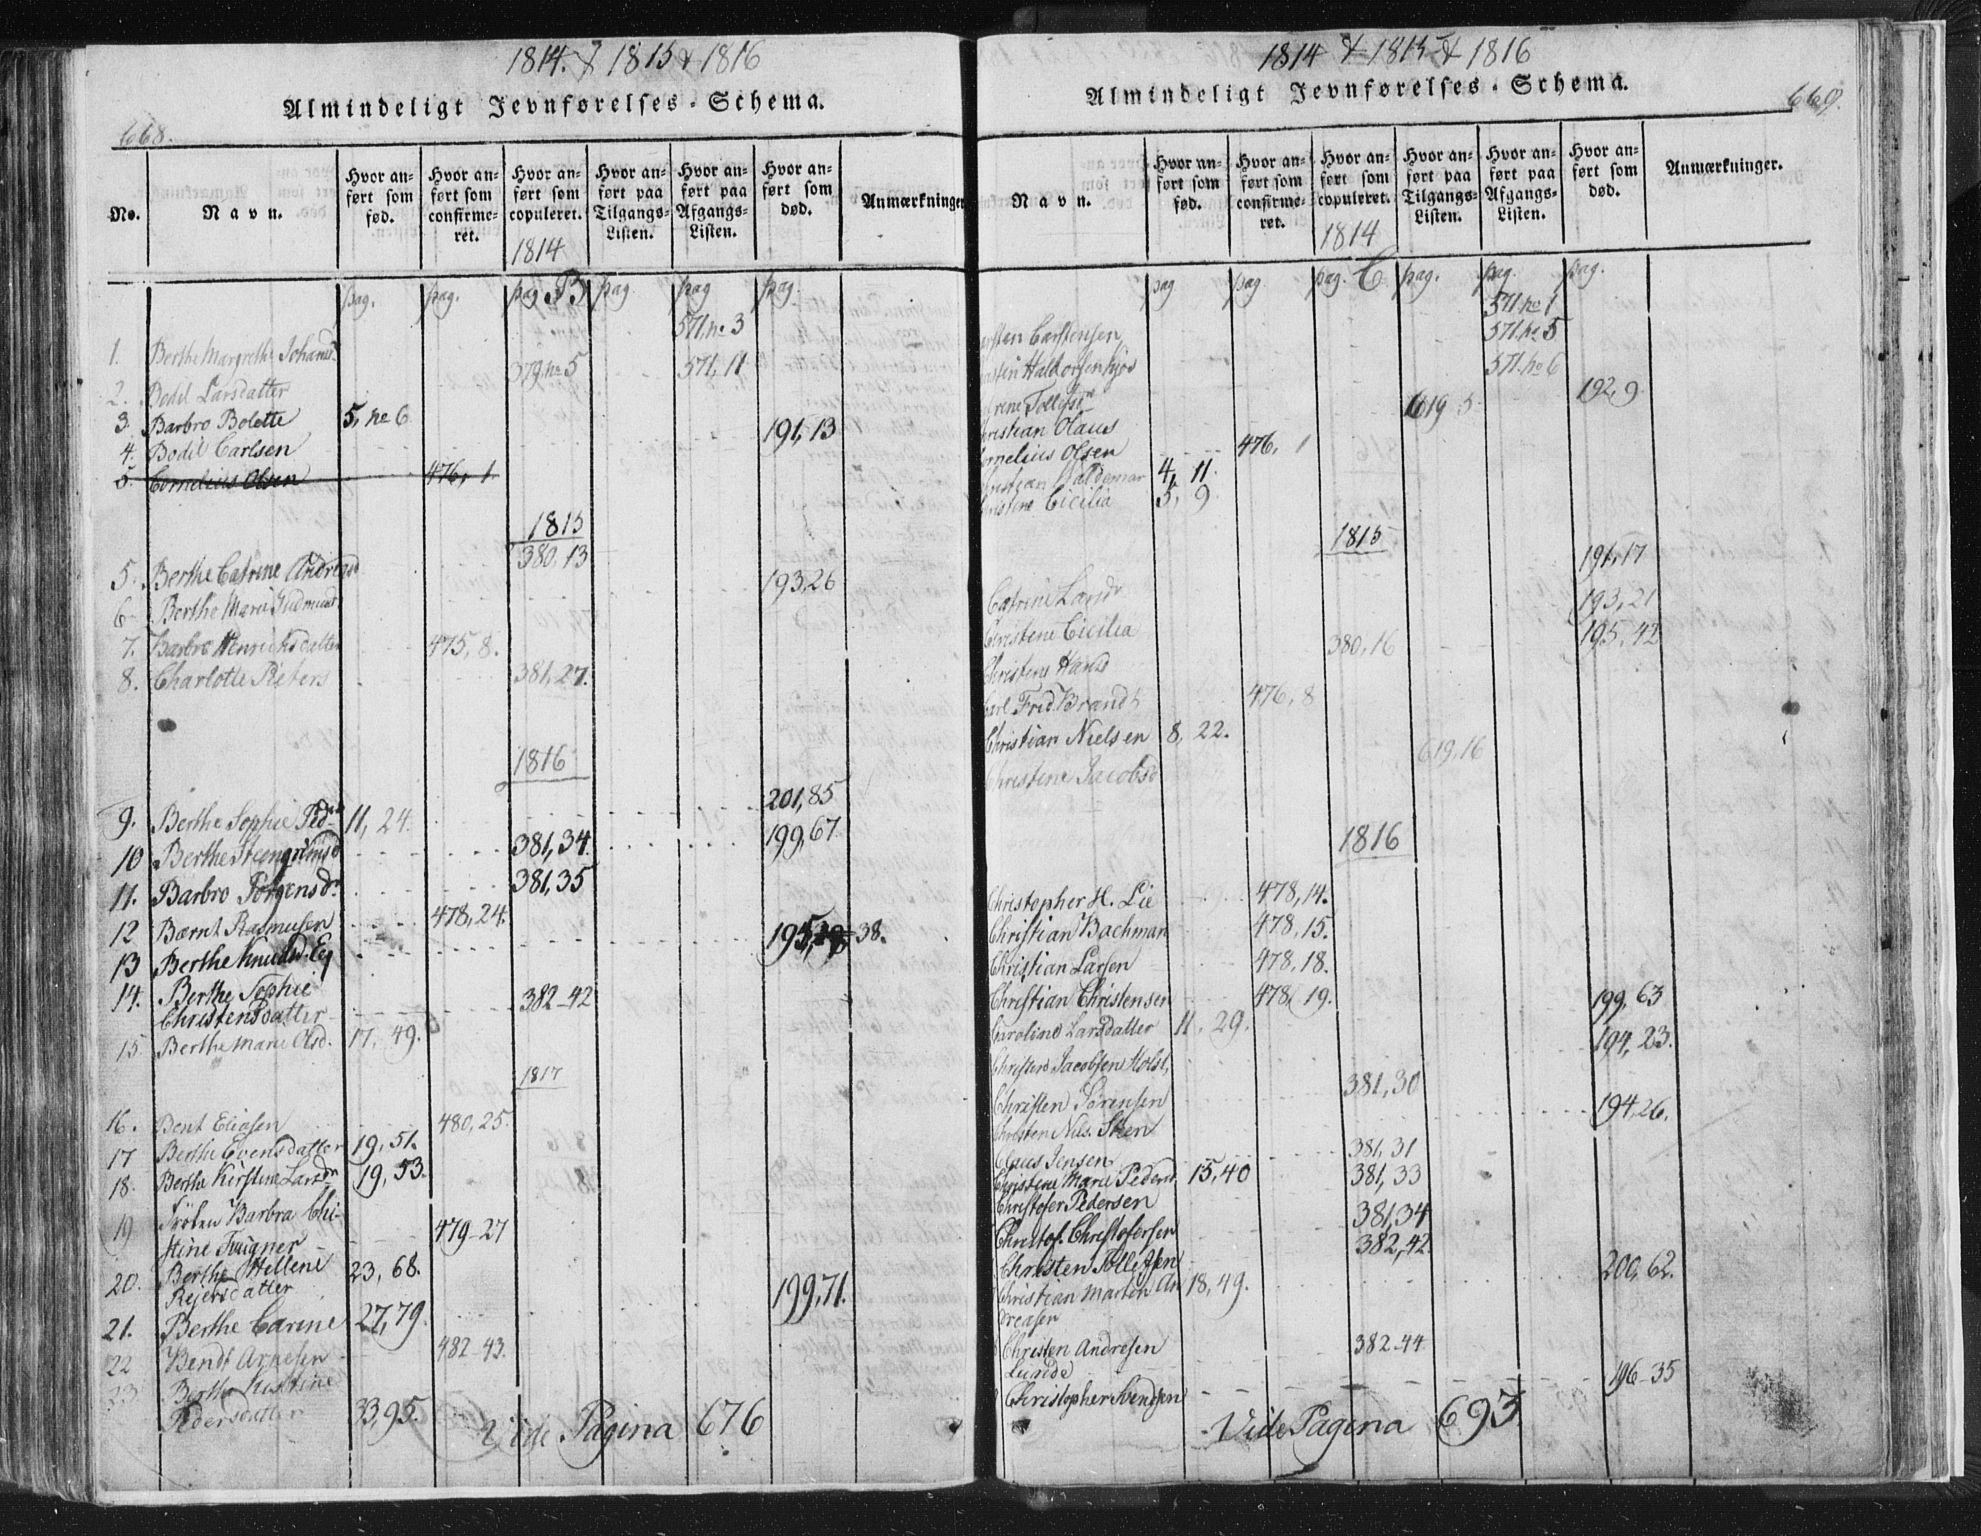 1814. & 1815 & 1816
Almindeligt Jevnførelses-Schema.
668.
No.
Navn.
Hvor an-ført som fød.
Hvor an-ført som confirme-ret.
Hvor an-ført som copuleret.
Hvor an-ført paa Tilgangs-Listen.
Hvor an-ført paa Afgangs-Listen.
Hvor an-ført som død.
Anmærkninger
1814
pag. pag. pag. B pag pag pag.
571. no 3
1. Berthe Margrethe Johans
379. no 5 571, 11
2. Bodil Larsdatter
3. Barbro Bolette 5, no 6
191, 13
4. Bodil Carlsen
5. Cornelius Olsen 476, 1
1815
380, 13
5. Berthe Catrine Andreasd
193,26
6. Berthe Marie Gudmunds
7. Barbro Henricksdatter 475, 8.
8. Charlotte Pieters 381, 27.
1816
201,85
9. Berthe Sophie Ped 11, 24.
199,67.
10 Berthe Steengrimsd 381, 34.
11. Barbro Jørgensdr 381, 35
12 Bærnt Rasmusen 478, 24.
195, 38.
13 Berthe Knudsd. Eg
14. Berthe Sophie Christensdatter 382-42
15 Berthe Marie Olsd. 17, 49.
1817
16. Bent Eliasen 480, 25.
17 Berthe Evensdatter 19, 51.
18. Berthe Kirstine Larsdr 19, 53.
19 Frøken Barbra Chi-
stine Traigner 479-27
20. Berthe Hellene Rejersdatter 23, 68.
199,71.
21. Berthe Carine 27, 79.
22 Bendt Arnesen 482-43.
23 Berthe Kistine
Pedersdatter 33, 95.
Vide Pagina 676
1814 & 1815 & 1816
Almindeligt Jevnførelses-Schema.
669.
Navn.
Hvor an-ført som fød.
Hvor an-ført som confirme-ret.
Hvor an-ført som copuleret.
Hvor an-ført paa Tilgangs-Listen.
Hvor an-ført paa Afgangs-Listen.
Hvor an-ført som død.
Anmærkninger.
1814
pag pag pag. C pag. pag. pag.
571. no 1
571. no 5
arsten Carstensen
571. no 6
Haldorsen
192, 9
619 5
hristian Olaus
ornelius Olsen 476, 1
hristian Valdemar 4, 11.
hristine Cicilia 5, 9
1815
191, 17
Catrine Larsdr
193, 21
Christene Cicilia
195, 42
380, 16
Christine Hansd
arl Frid. Brandt 476, 8
Christian Nielsen 8, 22.
619, 16
Christine Jacobsd
1816
Christopher H. Lie 478, 14.
Christian Bachman 478, 15.
Christian Larsen 478, 18.
Christian Christensen 478, 19.
199, 63
Caroline Larsdatter 11, 29.
194, 23.
Christen Jacobsen Holst,
381, 30
Christen Sørensen
194, 26.
Christen Niels. Steen
381, 31
Claus Jensen
Christine Marie Pedersd 15, 40
381, 33
Christofer Pedersen
381, 34
Christof. Christofersen
382, 42.
Christen Tollefsen
200, 62.
Christian Marten An
dreasen 18, 49.
Christen Andresen
Lunde 382-44
196-35
Christopher Svendsen
Vide Pagina 693